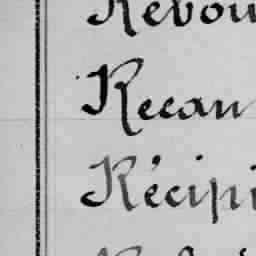 Rebou
Recan
Récipi